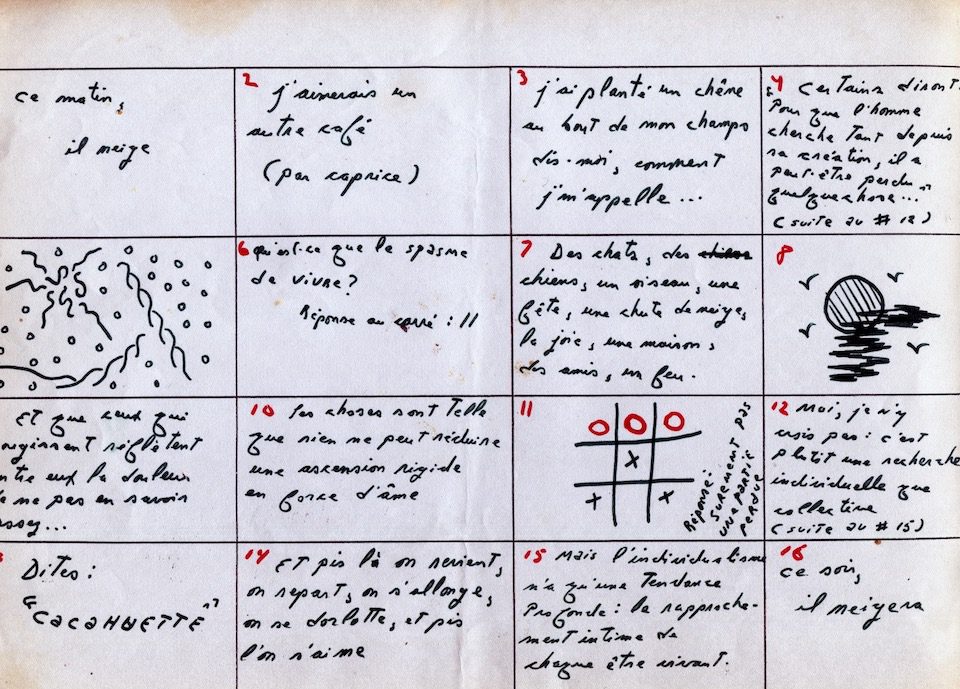 ce matin,
il neige
2 j'aimerais un
autre café
(par caprice)
3 j'ai planté un chêne
au bout de mon champs
dis-moi, comment
j'm'appelle...
4 certains diront:
"Pour que l'homme
cherche tant depuis
sa création, il a
peut-être perdu
quelque chose..."
(suite au # 12)
6 qu'est-ce que le spasme
de vivre?
Réponse au carré : 11
7 Des chats, des chiens
chiens, un oiseau, une
fête, une chute de neige,
la joie, une maison,
des amis, un feu.
8
Et que ceux qui
réflètent
eux la douleur
ne pas en savoir
10 les choses sont telle
que rien ne peut réduire
une ascension rigide
en force d'âme
11
O O O
X
X X
Réponse:
Surement pas
une partie
perdue
12 Moi, je n'y
crois pas: c'est
plutôt une recherche
individuelle que
collective
(suite au # 15)
Dites:
"CACAHUETTE"
14 Et pis là on revient,
on repart, on s'allonge,
on se dorlotte, et pis
l'on s'aime
15 Mais l'individualisme
n'a qu'une tendance
Profonde: le rapproche-
ment intime de
chaque être vivant.
16
ce soir,
il neigera